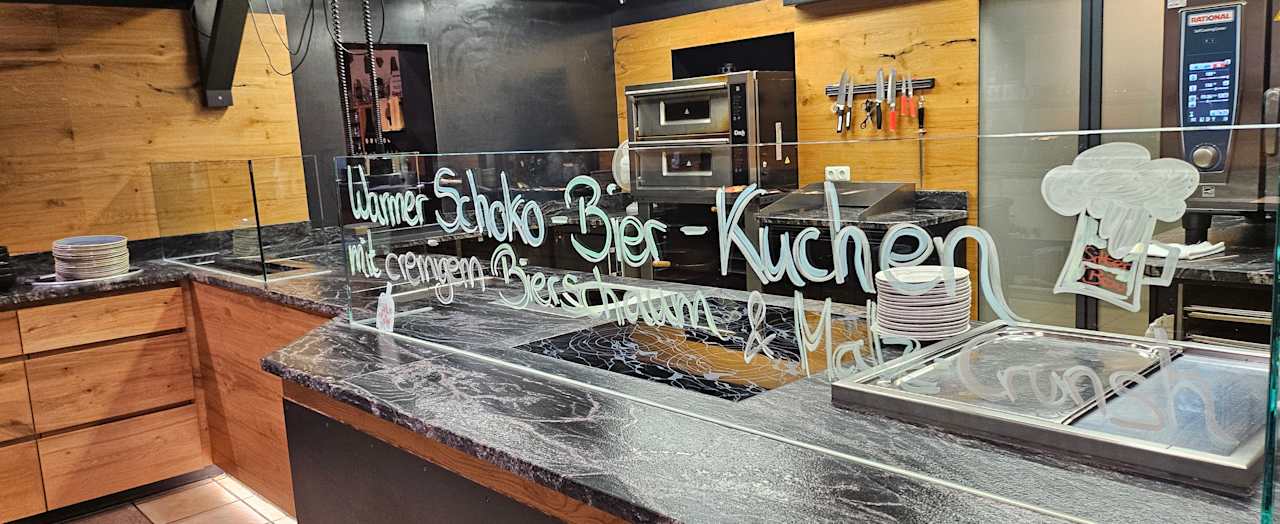 RATIONAL
SelfCookingCenter
Warmer Schoko-Bier-Kuchen
mit cremigem Bierschaum & Malz Crunch